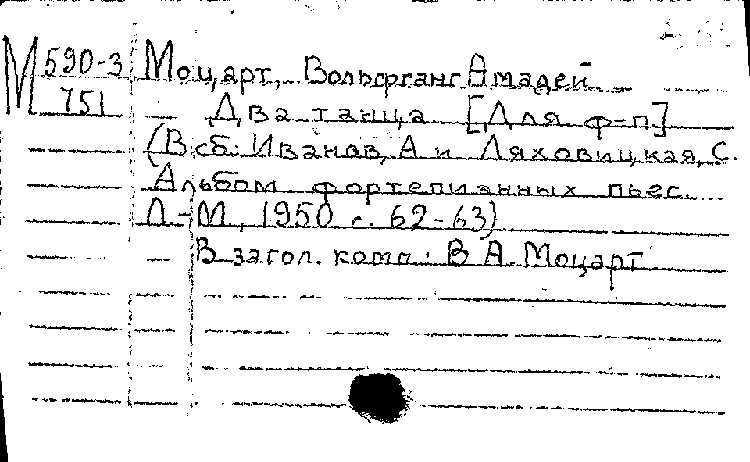 М 590-3 Моцарт, Вольфганг Амадей
751 Два танца [Для ф-п]
(В сб: Иванов, А и Ляховицкая, С.
Альбом фортепианных пьес.
Л.-М, 1950 с. 62-63)
В загол. комп: В А. Моцарт